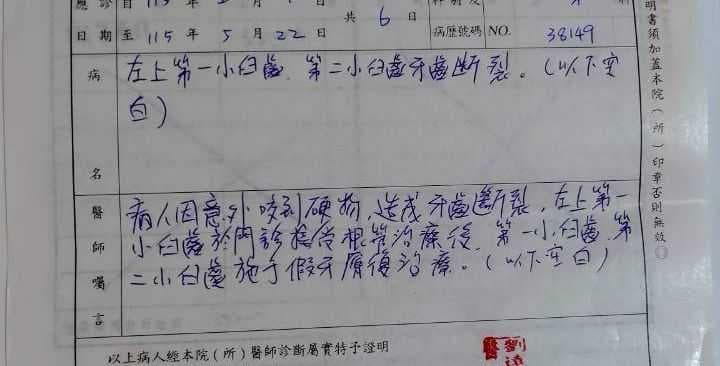 應診 自 115 年 月 日
日期 至 115 年 5 月 22 日 共 6 日 病歷號碼 NO. 38149
病名
左上第一小臼齒、第二小臼齒牙齒斷裂。(以下空
白)
醫師囑言
病人因意外咬到硬物,造成牙齒斷裂,左上第一
小臼齒於門診接受根管治療後,第一小臼齒、第
二小臼齒施予假牙贋復治療。(以下空白)
以上病人經本院(所)醫師診斷屬實特予證明
醫 劉
明書須加蓋本院(所)印章否則無效◎